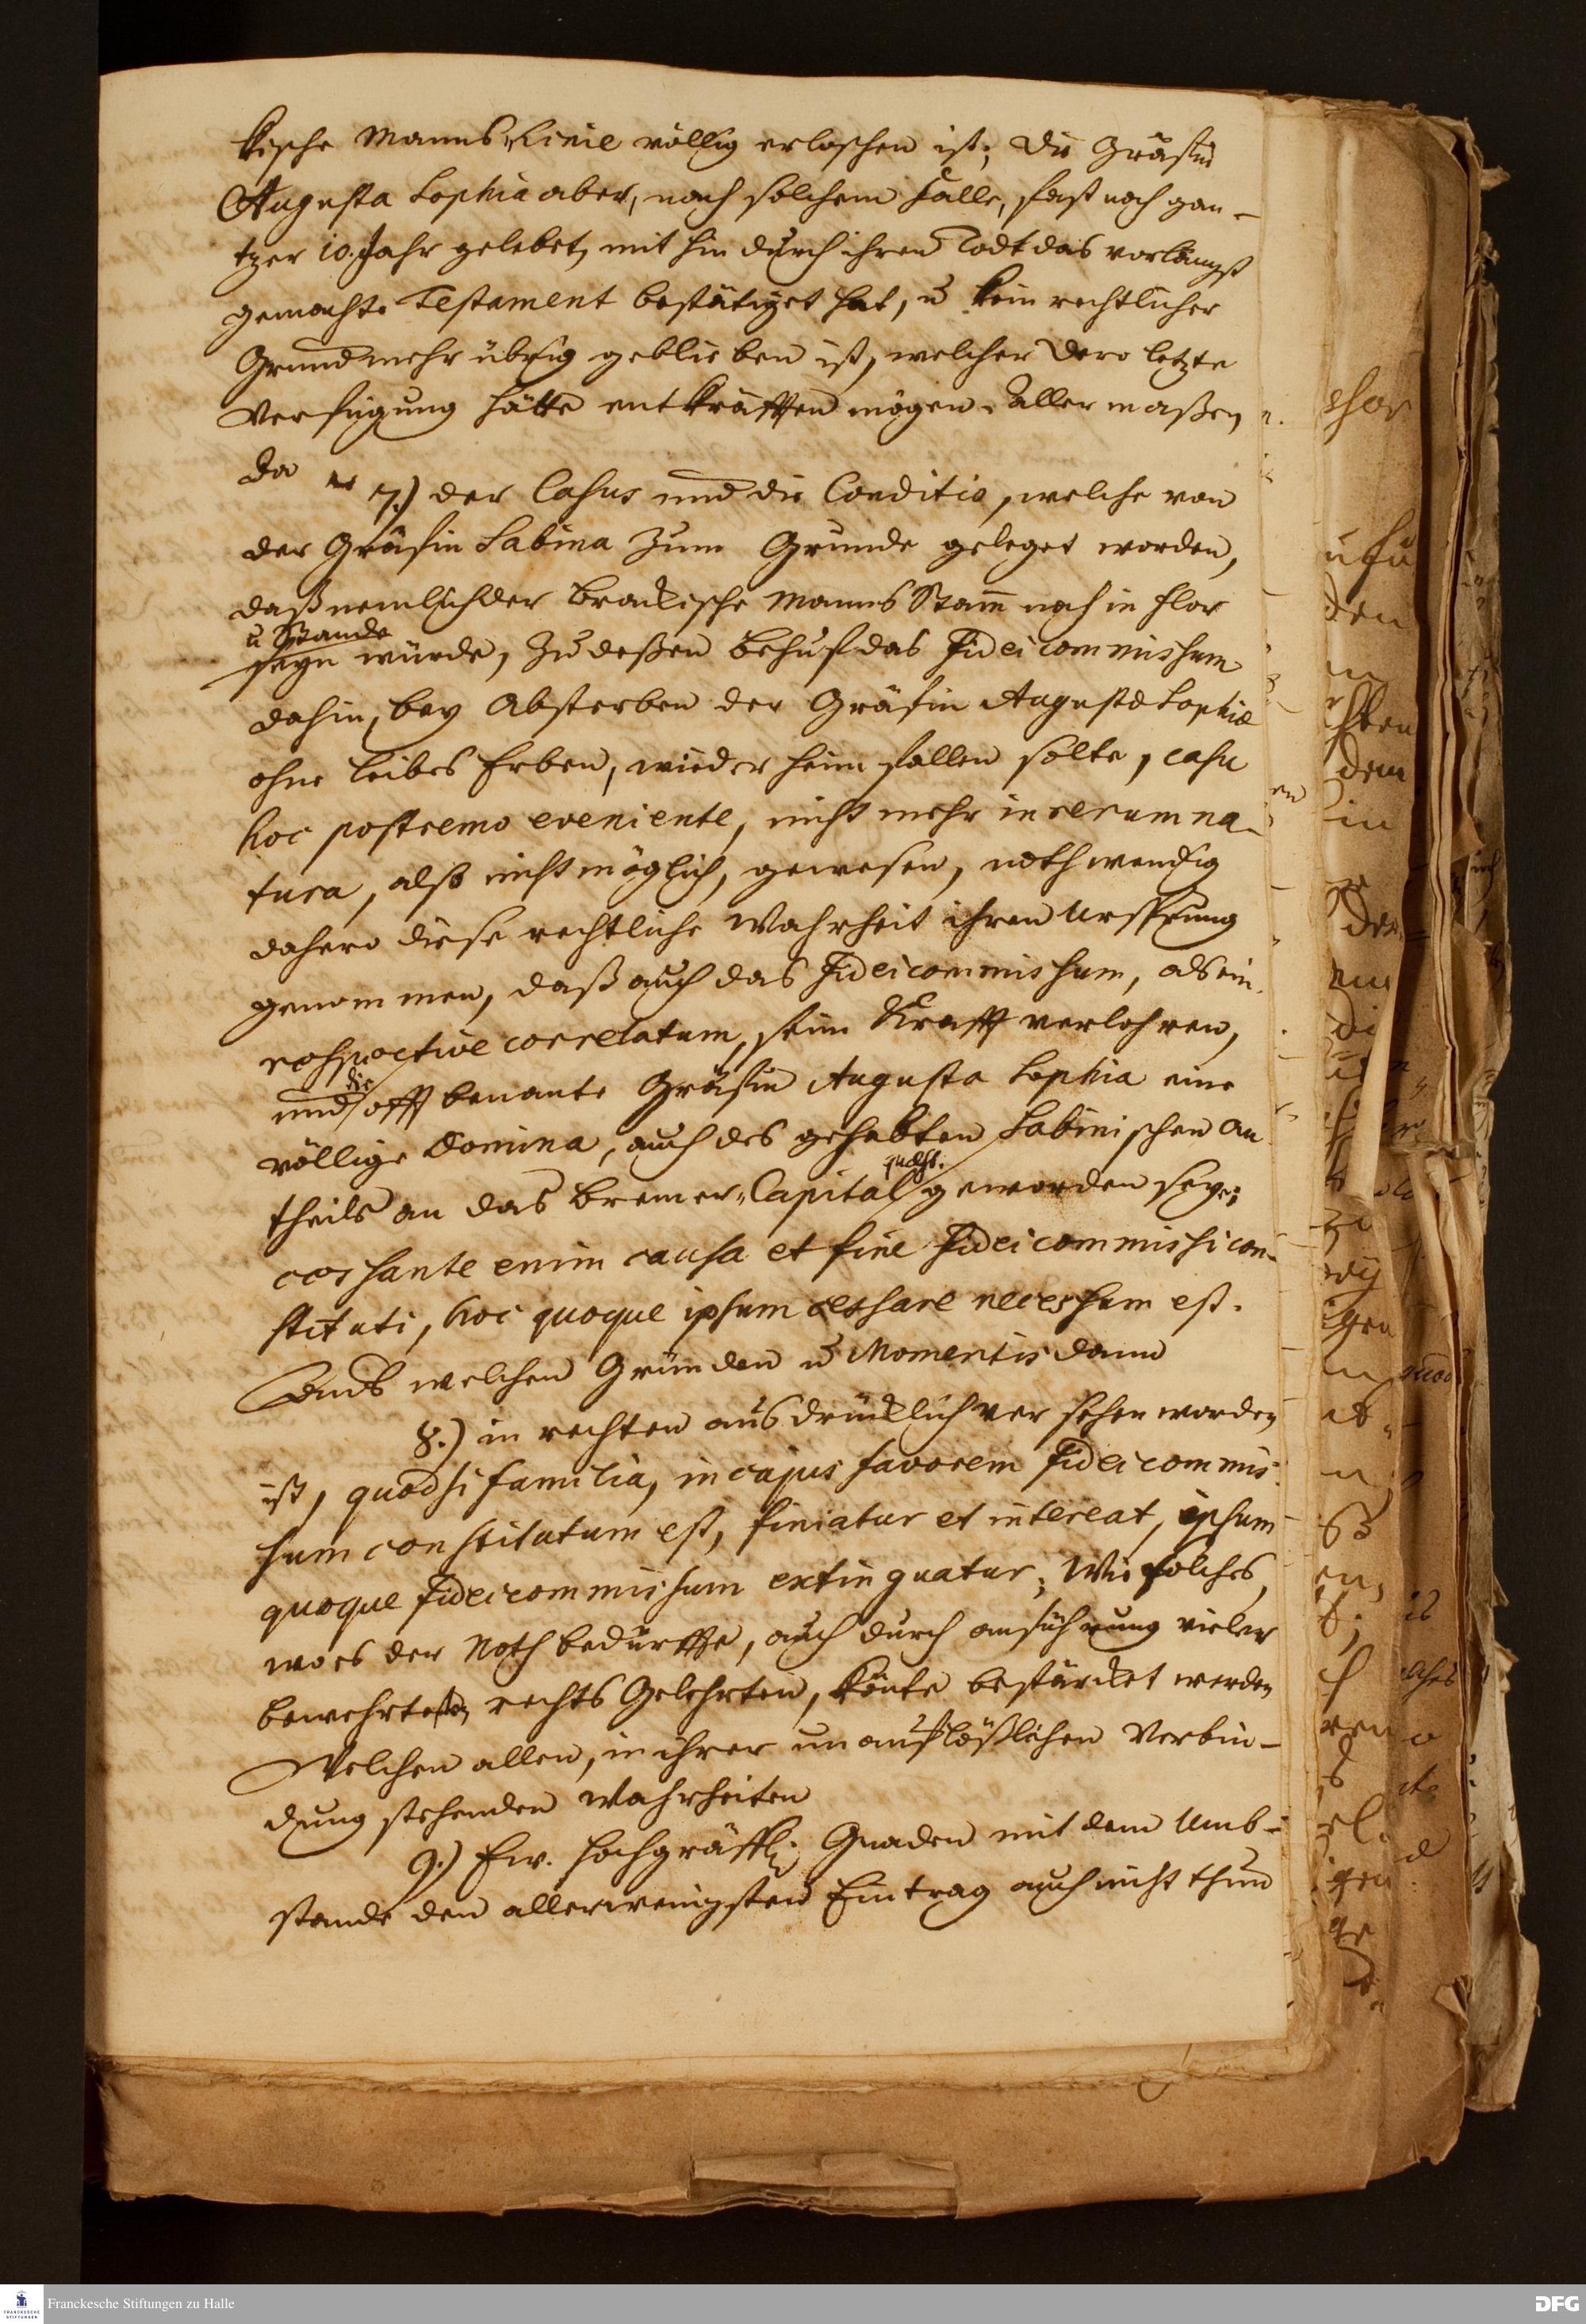 kische Manns Linie völlig erloschen ist; die Gräfin
Augusta Sophia aber, nach solchem Falle, fast noch gan-
tzer 10. Jahr gelebet, mit hin durch ihren Todt das vorlängst
gemachte Testament bestätiget hat, u kein rechtlicher
Grund mehr übrig geblieben ist, welcher dero letzte
Verfügung hätte entkräfften mögen. Aller maßen,
da
7.) der Casus und die Conditio, welche von
der Gräfin Sabina zum Grunde geleget worden,
daß nemlich der Brockische Manns Stam noch in Flor
u Stande
seyn würde, zu deßen Behuf das Fidei commissum
dahin, bey Absterben der Gräfin Augustæ Sophiæ
ohne Leibes Erben, wieder heim fallen solte, casu
hoc postremo eveniente, nicht mehr in rerum na-
tura, alß nicht möglich, gewesen, nothwendig
dahero diese rechtliche Wahrheit ihren Ursprung
genommen, daß auch das Fideicommissum, als ein
respective correlatum, seine Krafft verlohren,
die
und offt benante Gräfin Augusta Sophia eine
völlige Domina, auch des gehabten Sabinischen An
theils an das Bremer-Capital geworden seye;
cessante enim causa et fine Fideicommissi con-
stituti, hoc quoque ipsum cessare necessum est.
Aus welchen Gründen u Momentis dann
8.) in rechten ausdrücklich versehen worden
ist, quod si familia, in cujus favorem Fideicommis
sum constitutum est, finiatur et intereat, ipsum
quoque Fideicommissum extinguatur; Wie solches,
wo es der Noth bedürffte, auch durch anführung vieler
bewehrtesten rechts Gelehrten, könte bestärcket werden
Welchen allen, in ihrer unauflößlichen Verbin-
dung stehenden Wahrheiten
9.) Ew. Hochgräffl. Gnaden mit dem Umb-
stande den allerwenigsten Eintrag auch nicht thun
Franckesche Stiftungen zu Halle
FRANCKESCHE
STIFTUNGEN
DFG